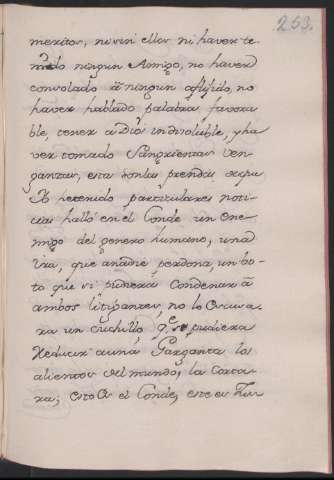 253.
meritos, ni sin ellos ni haver te-
nido ningun Amigo, no haver
consolado â ningun aflijido, no
haver hablado palabra favora
ble, tener a Dios indisoluble, y ha
ver tomado Sangrientas Ven-
ganzas, estas son las prendas
particulares noti-
cias halló en el Conde un ene-
migo del genero humano, una
ira, que a nadie perdona, un vo-
to que si pudiera Condenar â
ambos litigantes, no lo escusa-
ra un cuchillo qe. se pudiera
Reducir a una Garganta los
alientos del mundo, la Corta-
ra; esto es el Conde, este es